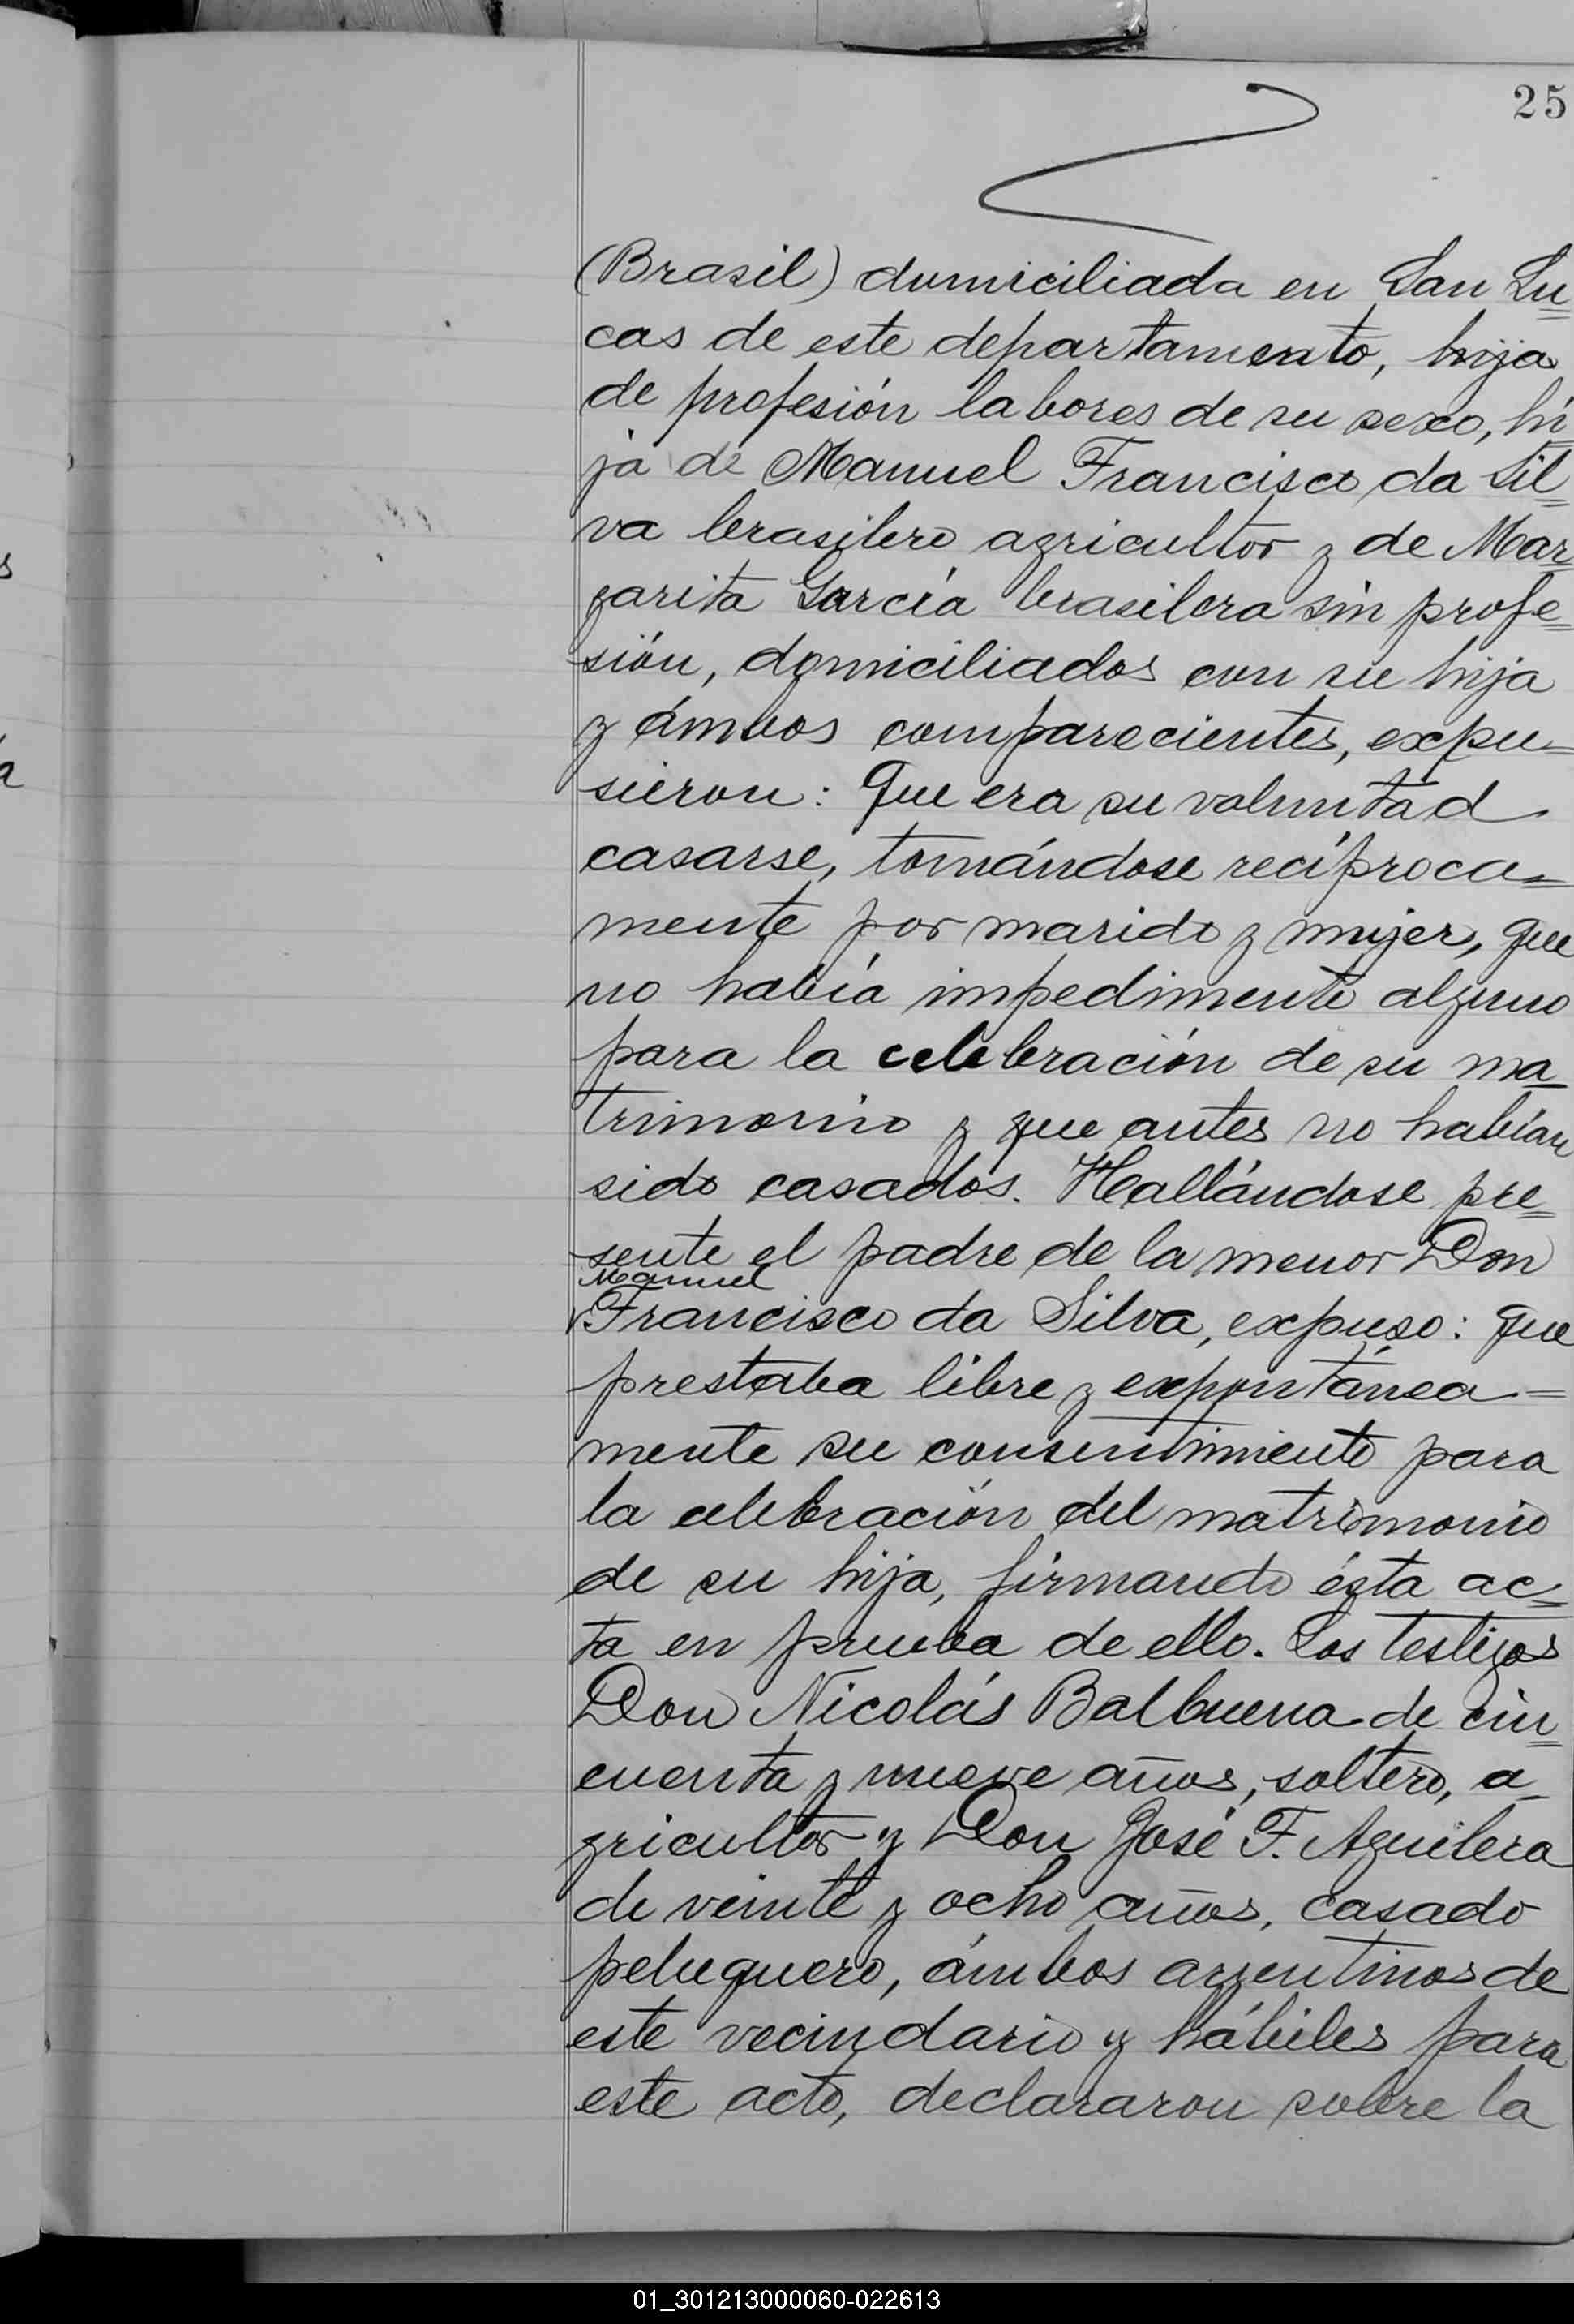 25
(Brasil) domiciliada en San Lu=
cas de este departamento, hija
de profesión labores de su sexo, hi=
ja de Manuel Francisco da Sil=
va brasilero agricultor y de Mar=
garita García brasilera sin profe=
sión, domiciliados con su hija
y ámbos comparecientes, expu=
sieron: Que era su voluntad
casarse, tomándose recíproca=
mente por marido y mujer, que
no había impedimento alguno
para la celebración de su ma_
trimonio y que antes no habían
sido casados. Hallándose pre=
sente el padre de la menor Don
Manuel
Francisco da Silva, expuso: que
prestaba libre y expontánea=
mente su consentimiento para
la celebración del matrimonio
de su hija, firmando ésta ac=
ta en prueba de ello. Los testigos
Don Nicolás Balbuena de cin=
cuenta y nueve años, soltero, a_
gricultor y Don José F. Aguilera
de veinte y ocho años, casado
peluquero, ámbos argentinos de
este vecindario y hábiles para
este acto, declararon sobre la
01_301213000060-022613